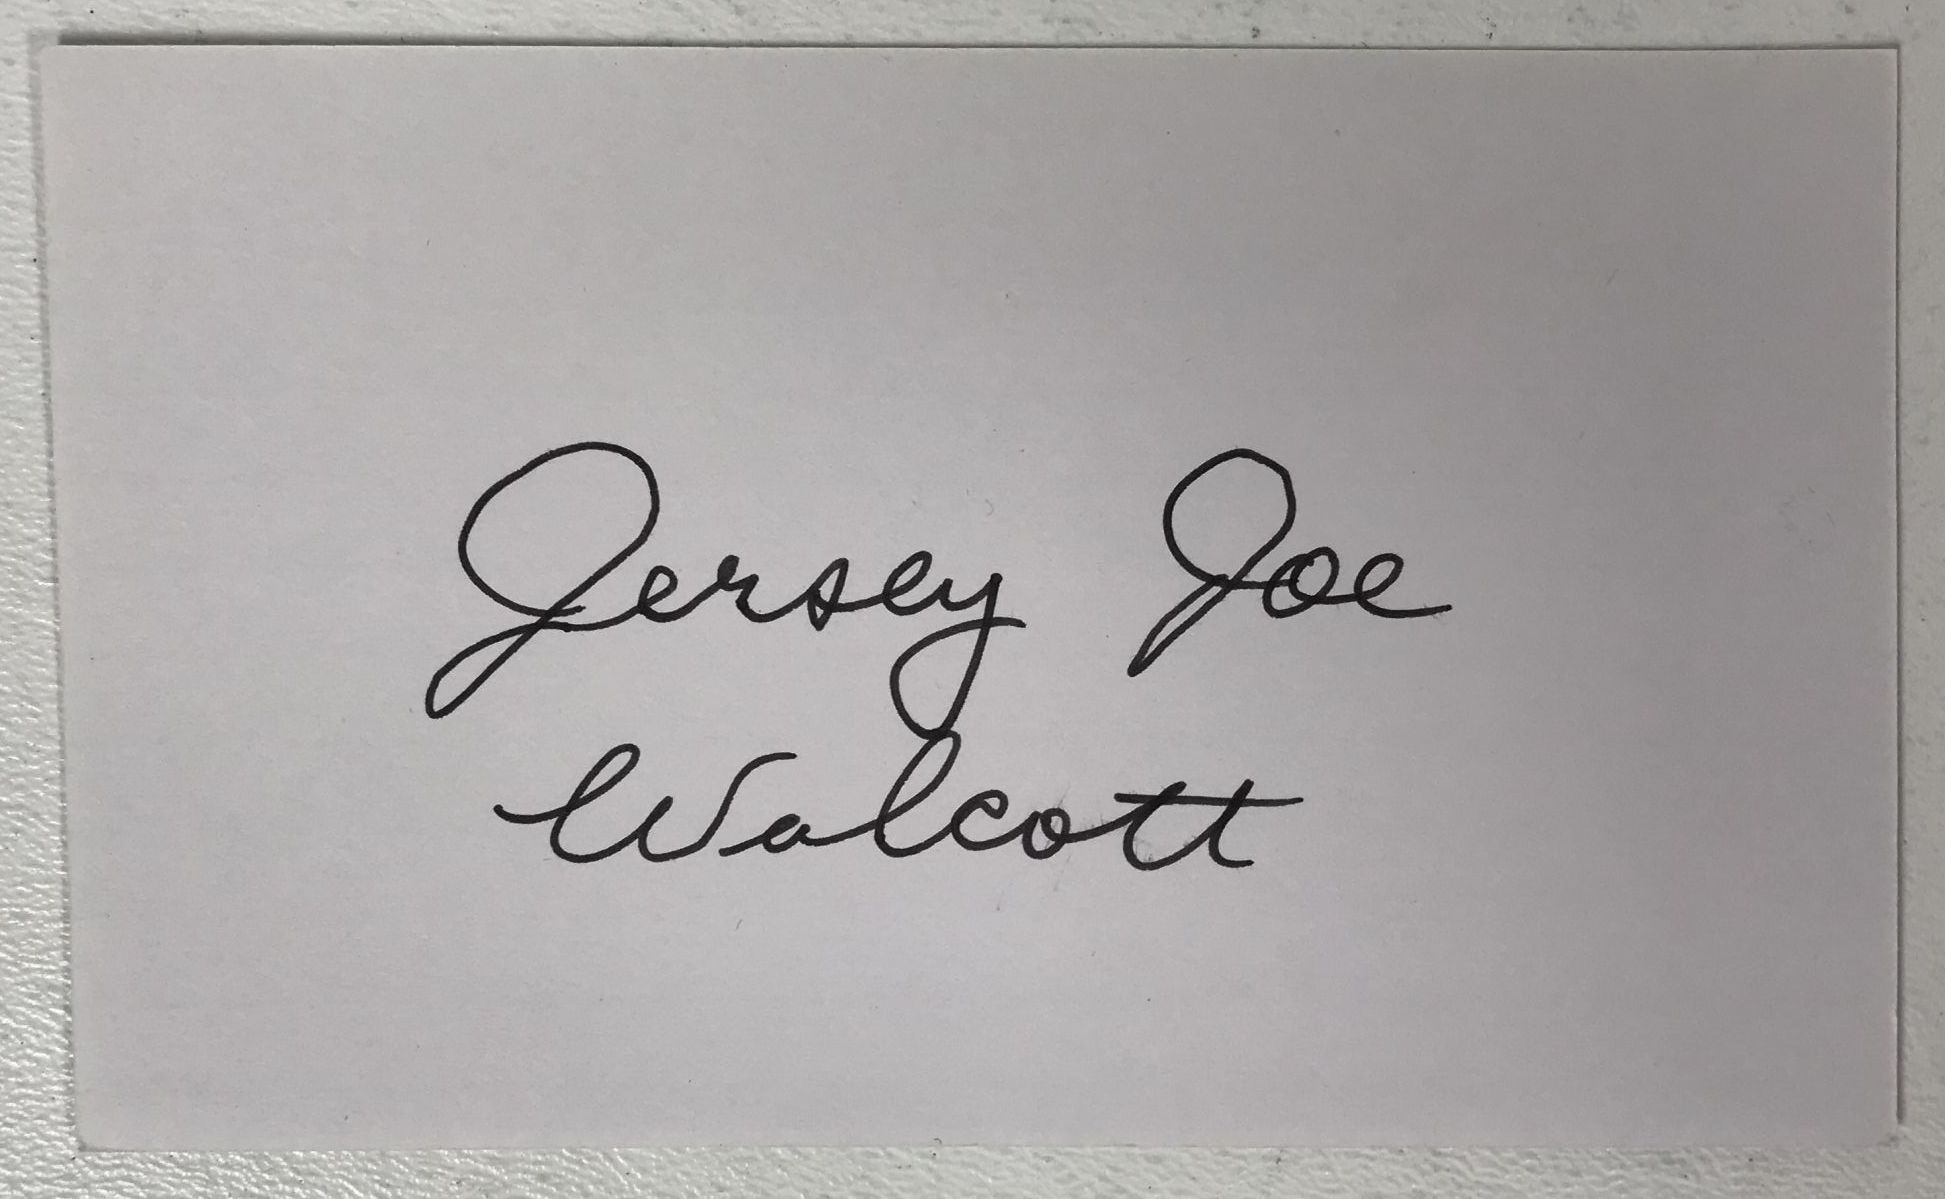 Jersey Joe
Walcott